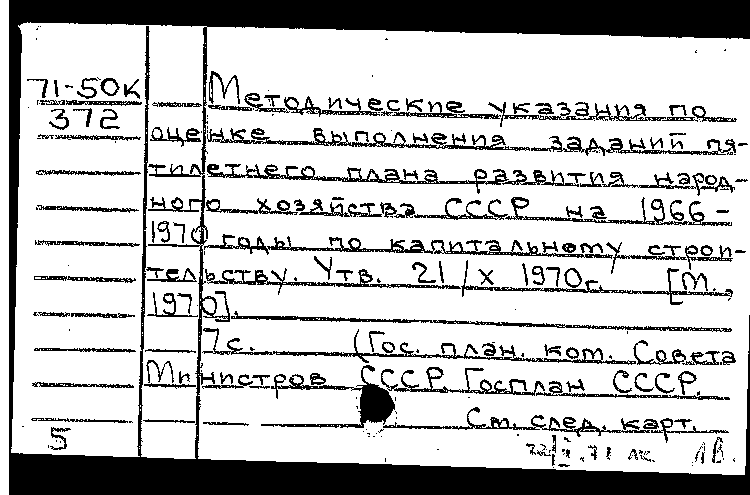 71-50к
372
Методические указания по
оценке выполнения заданий пя-
тилетнего плана развития народ-
ного хозяйства СССР на 1966-
1970 годы по капитальному строи-
тельству. Утв. 21/X 1970г. [М.,
1970].
7с. (Гос. план. ком. Совета
Министров СССР. Госплан СССР.
См. след. карт.
5
71 лк ЛВ.